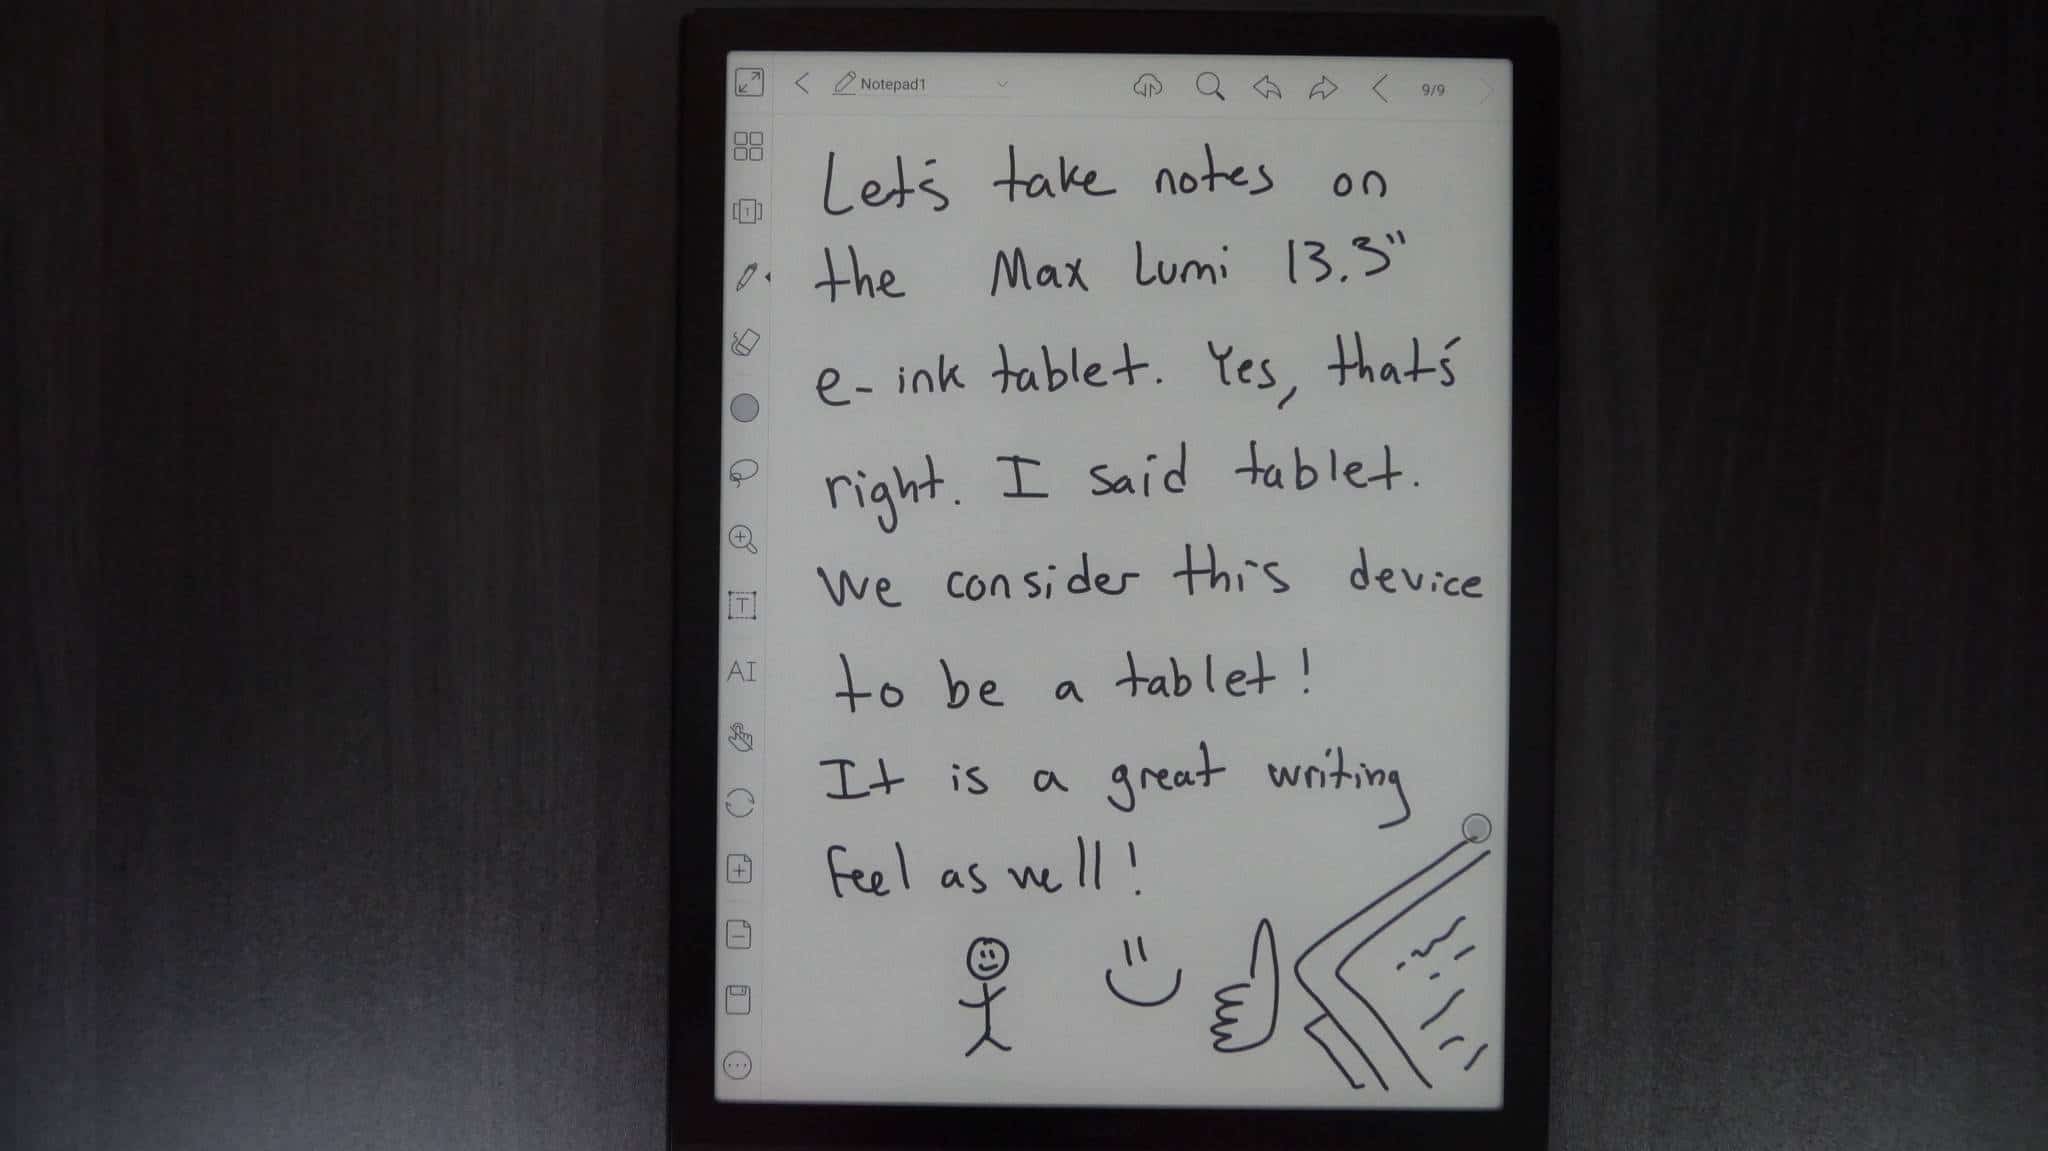 Notepad1
9/9
Let's take notes on
the Max Lumi 13.3"
e-ink tablet. Yes, that's
right. I said tablet.
We consider this device
to be a tablet!
It is a great writing
feel as well!
T
AI